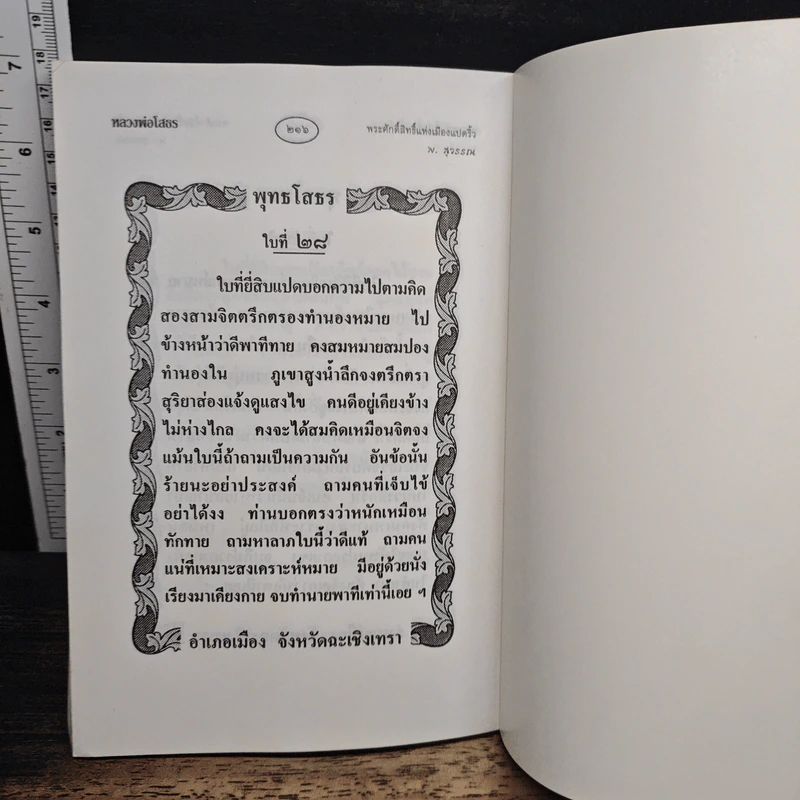 หลวงพ่อโสธร
๒๑๖
พระศักดิ์สิทธิ์แห่งเมืองแปดริ้ว
พ. สุวรรณ
พุทธโสธร
ใบที่ ๒๘
ใบที่ยี่สิบแปดบอกความไปตามคิด
สองสามจิตตรึกตรองทำนองหมาย ไป
ข้างหน้าว่าดีพาทีทาย คงสมหมายสมปอง
ทำนองใน ภูเขาสูงน้ำลึกจงตรึกตรา
สุริยาส่องแจ้งดูแสงไข คนดีอยู่เคียงข้าง
ไม่ห่างไกล คงจะได้สมคิดเหมือนจิตจง
แม้นใบนี้ถ้าถามเป็นความกัน อันข้อนั้น
ร้ายนะอย่าประสงค์ ถามคนที่เจ็บไข้
อย่าได้งง ท่านบอกตรงว่าหนักเหมือน
ทักทาย ถามหาลาภใบนี้ว่าดีแท้ ถามคน
แน่ที่เหมาะสงเคราะห์หมาย มีอยู่ด้วยนั่ง
เรียงมาเคียงกาย จบทำนายพาทีเท่านี้เอย ฯ
อำเภอเมือง จังหวัดฉะเชิงเทรา
7
6
5
4
3
20
19
18
17
16
15
14
13
12
11
10
9
8